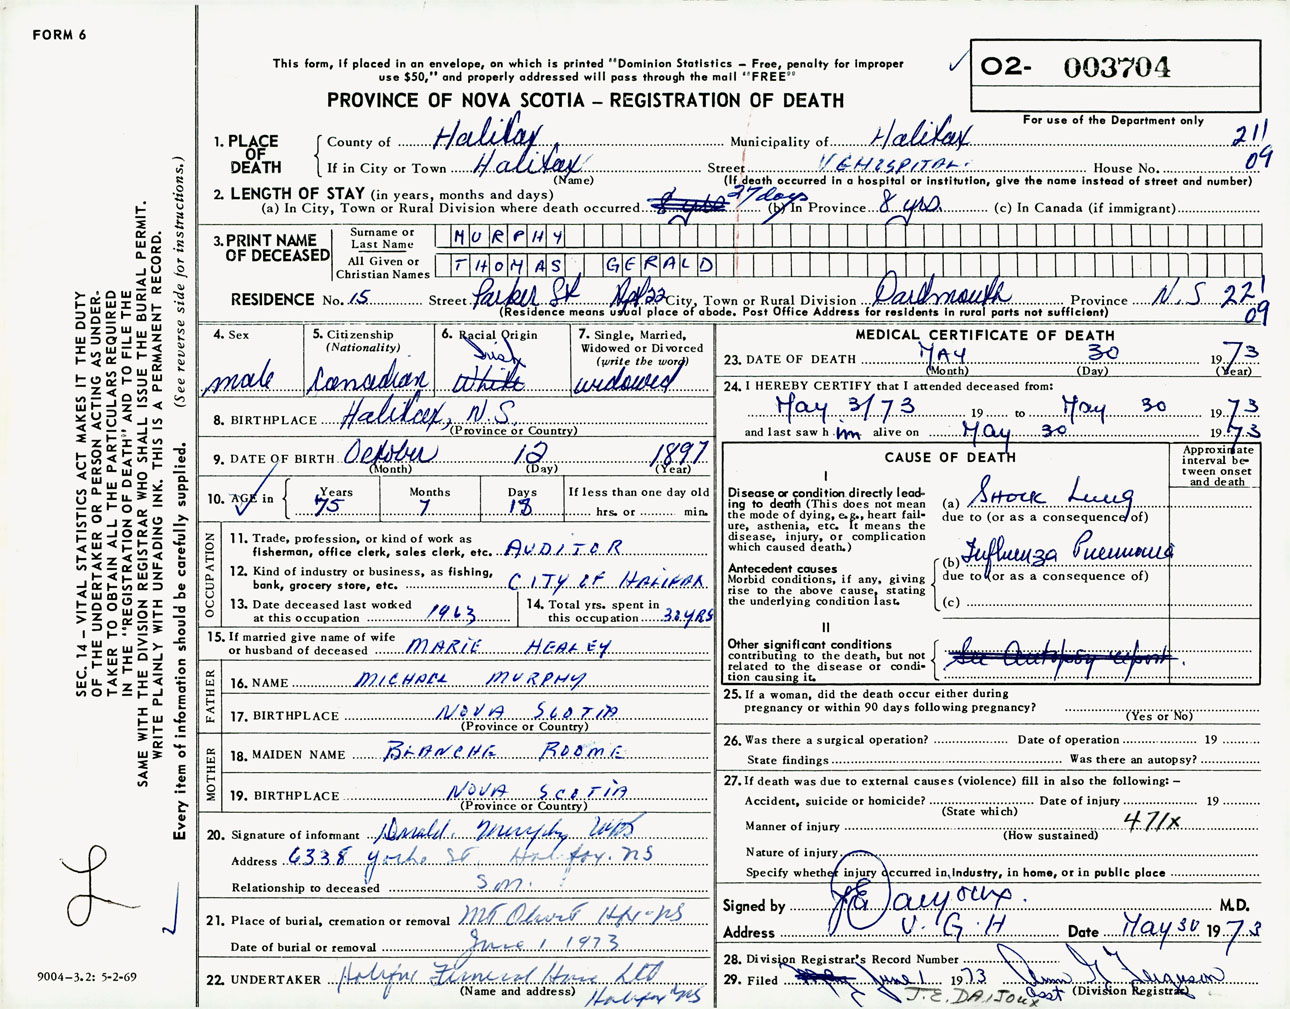 FORM 6
This form, if placed in an envelope, on which is printed "Dominion Statistics – Free, penalty for improper
use $50," and properly addressed will pass through the mail "FREE"
PROVINCE OF NOVA SCOTIA – REGISTRATION OF DEATH
O2- 003704
For use of the Department only
211
09
1. PLACE OF DEATH
County of Halifax Municipality of Halifax
If in City or Town Halifax Street V G HOSPITAL House No.
(Name) (If death occurred in a hospital or institution, give the name instead of street and number)
2. LENGTH OF STAY (in years, months and days)
(a) In City, Town or Rural Division where death occurred 8 yrs 27 days (b) In Province 8 yrs. (c) In Canada (if immigrant)
3. PRINT NAME OF DECEASED
Surname or Last Name MURPHY
All Given or Christian Names THOMAS GERALD
RESIDENCE No. 15 Street Parker St Apt 22 City, Town or Rural Division Dartmouth Province N.S. 221
09
(Residence means usual place of abode. Post Office Address for residents in rural parts not sufficient)
4. Sex
male
5. Citizenship
(Nationality)
Canadian
6. Racial Origin
Irish
White
7. Single, Married,
Widowed or Divorced
(write the word)
widowed
8. BIRTHPLACE Halifax, N.S.
(Province or Country)
9. DATE OF BIRTH October 12 1897
(Month) (Day) (Year)
10. AGE in Years 75 Months 7 Days 18 If less than one day old
hrs. or min.
OCCUPATION
11. Trade, profession, or kind of work as
fisherman, office clerk, sales clerk, etc. AUDITOR
12. Kind of industry or business, as fishing,
bank, grocery store, etc. CITY OF HALIFAX
13. Date deceased last worked
at this occupation 1963
14. Total yrs. spent in
this occupation 32 YRS
15. If married give name of wife
or husband of deceased MARIE HEALEY
FATHER
16. NAME MICHAEL MURPHY
17. BIRTHPLACE NOVA SCOTIA
(Province or Country)
MOTHER
18. MAIDEN NAME BLANCHE ROOME
19. BIRTHPLACE NOVA SCOTIA
(Province or Country)
20. Signature of informant Donald Murphy
Address 6338 Yorke St. Halifax. NS
Relationship to deceased Son.
21. Place of burial, cremation or removal Mt Olivet Hfx-NS
Date of burial or removal June 1, 1973
22. UNDERTAKER Halifax Funeral Home Ltd
(Name and address) Halifax NS
MEDICAL CERTIFICATE OF DEATH
23. DATE OF DEATH MAY 30 1973
(Month) (Day) (Year)
24. I HEREBY CERTIFY that I attended deceased from:
May 3/73 19 to May 30 1973
and last saw him alive on May 30 1973
CAUSE OF DEATH
Approximate
interval be-
tween onset
and death
I
Disease or condition directly lead-
ing to death (This does not mean
the mode of dying, e.g., heart fail-
ure, asthenia, etc. It means the
disease, injury, or complication
which caused death.)
(a) Shock Lung
due to (or as a consequence of)
Antecedent causes
Morbid conditions, if any, giving
rise to the above cause, stating
the underlying condition last.
(b) Influenza Pneumonia
due to (or as a consequence of)
(c)
II
Other significant conditions
contributing to the death, but not
related to the disease or condi-
tion causing it.
See Autopsy report.
25. If a woman, did the death occur either during
pregnancy or within 90 days following pregnancy?
(Yes or No)
26. Was there a surgical operation? Date of operation 19
State findings Was there an autopsy?
27. If death was due to external causes (violence) fill in also the following: –
Accident, suicide or homicide? Date of injury 19
(State which)
Manner of injury 471x
(How sustained)
Nature of injury
Specify whether injury occurred in Industry, in home, or in public place
Signed by J E Daijoux. M.D.
Address V. G. H Date May 30 1973
28. Division Registrar's Record Number
29. Filed June 1 1973 Ferguson
Asst (Division Registrar)
J. E. DAIJOUX
SEC. 14 – VITAL STATISTICS ACT MAKES IT THE DUTY
OF THE UNDERTAKER OR PERSON ACTING AS UNDER-
TAKER TO OBTAIN ALL THE PARTICULARS REQUIRED
IN THE "REGISTRATION OF DEATH" AND TO FILE THE
SAME WITH THE DIVISION REGISTRAR WHO SHALL ISSUE THE BURIAL PERMIT.
WRITE PLAINLY WITH UNFADING INK. THIS IS A PERMANENT RECORD.
Every item of information should be carefully supplied. (See reverse side for instructions.)
9004-3.2: 5-2-69